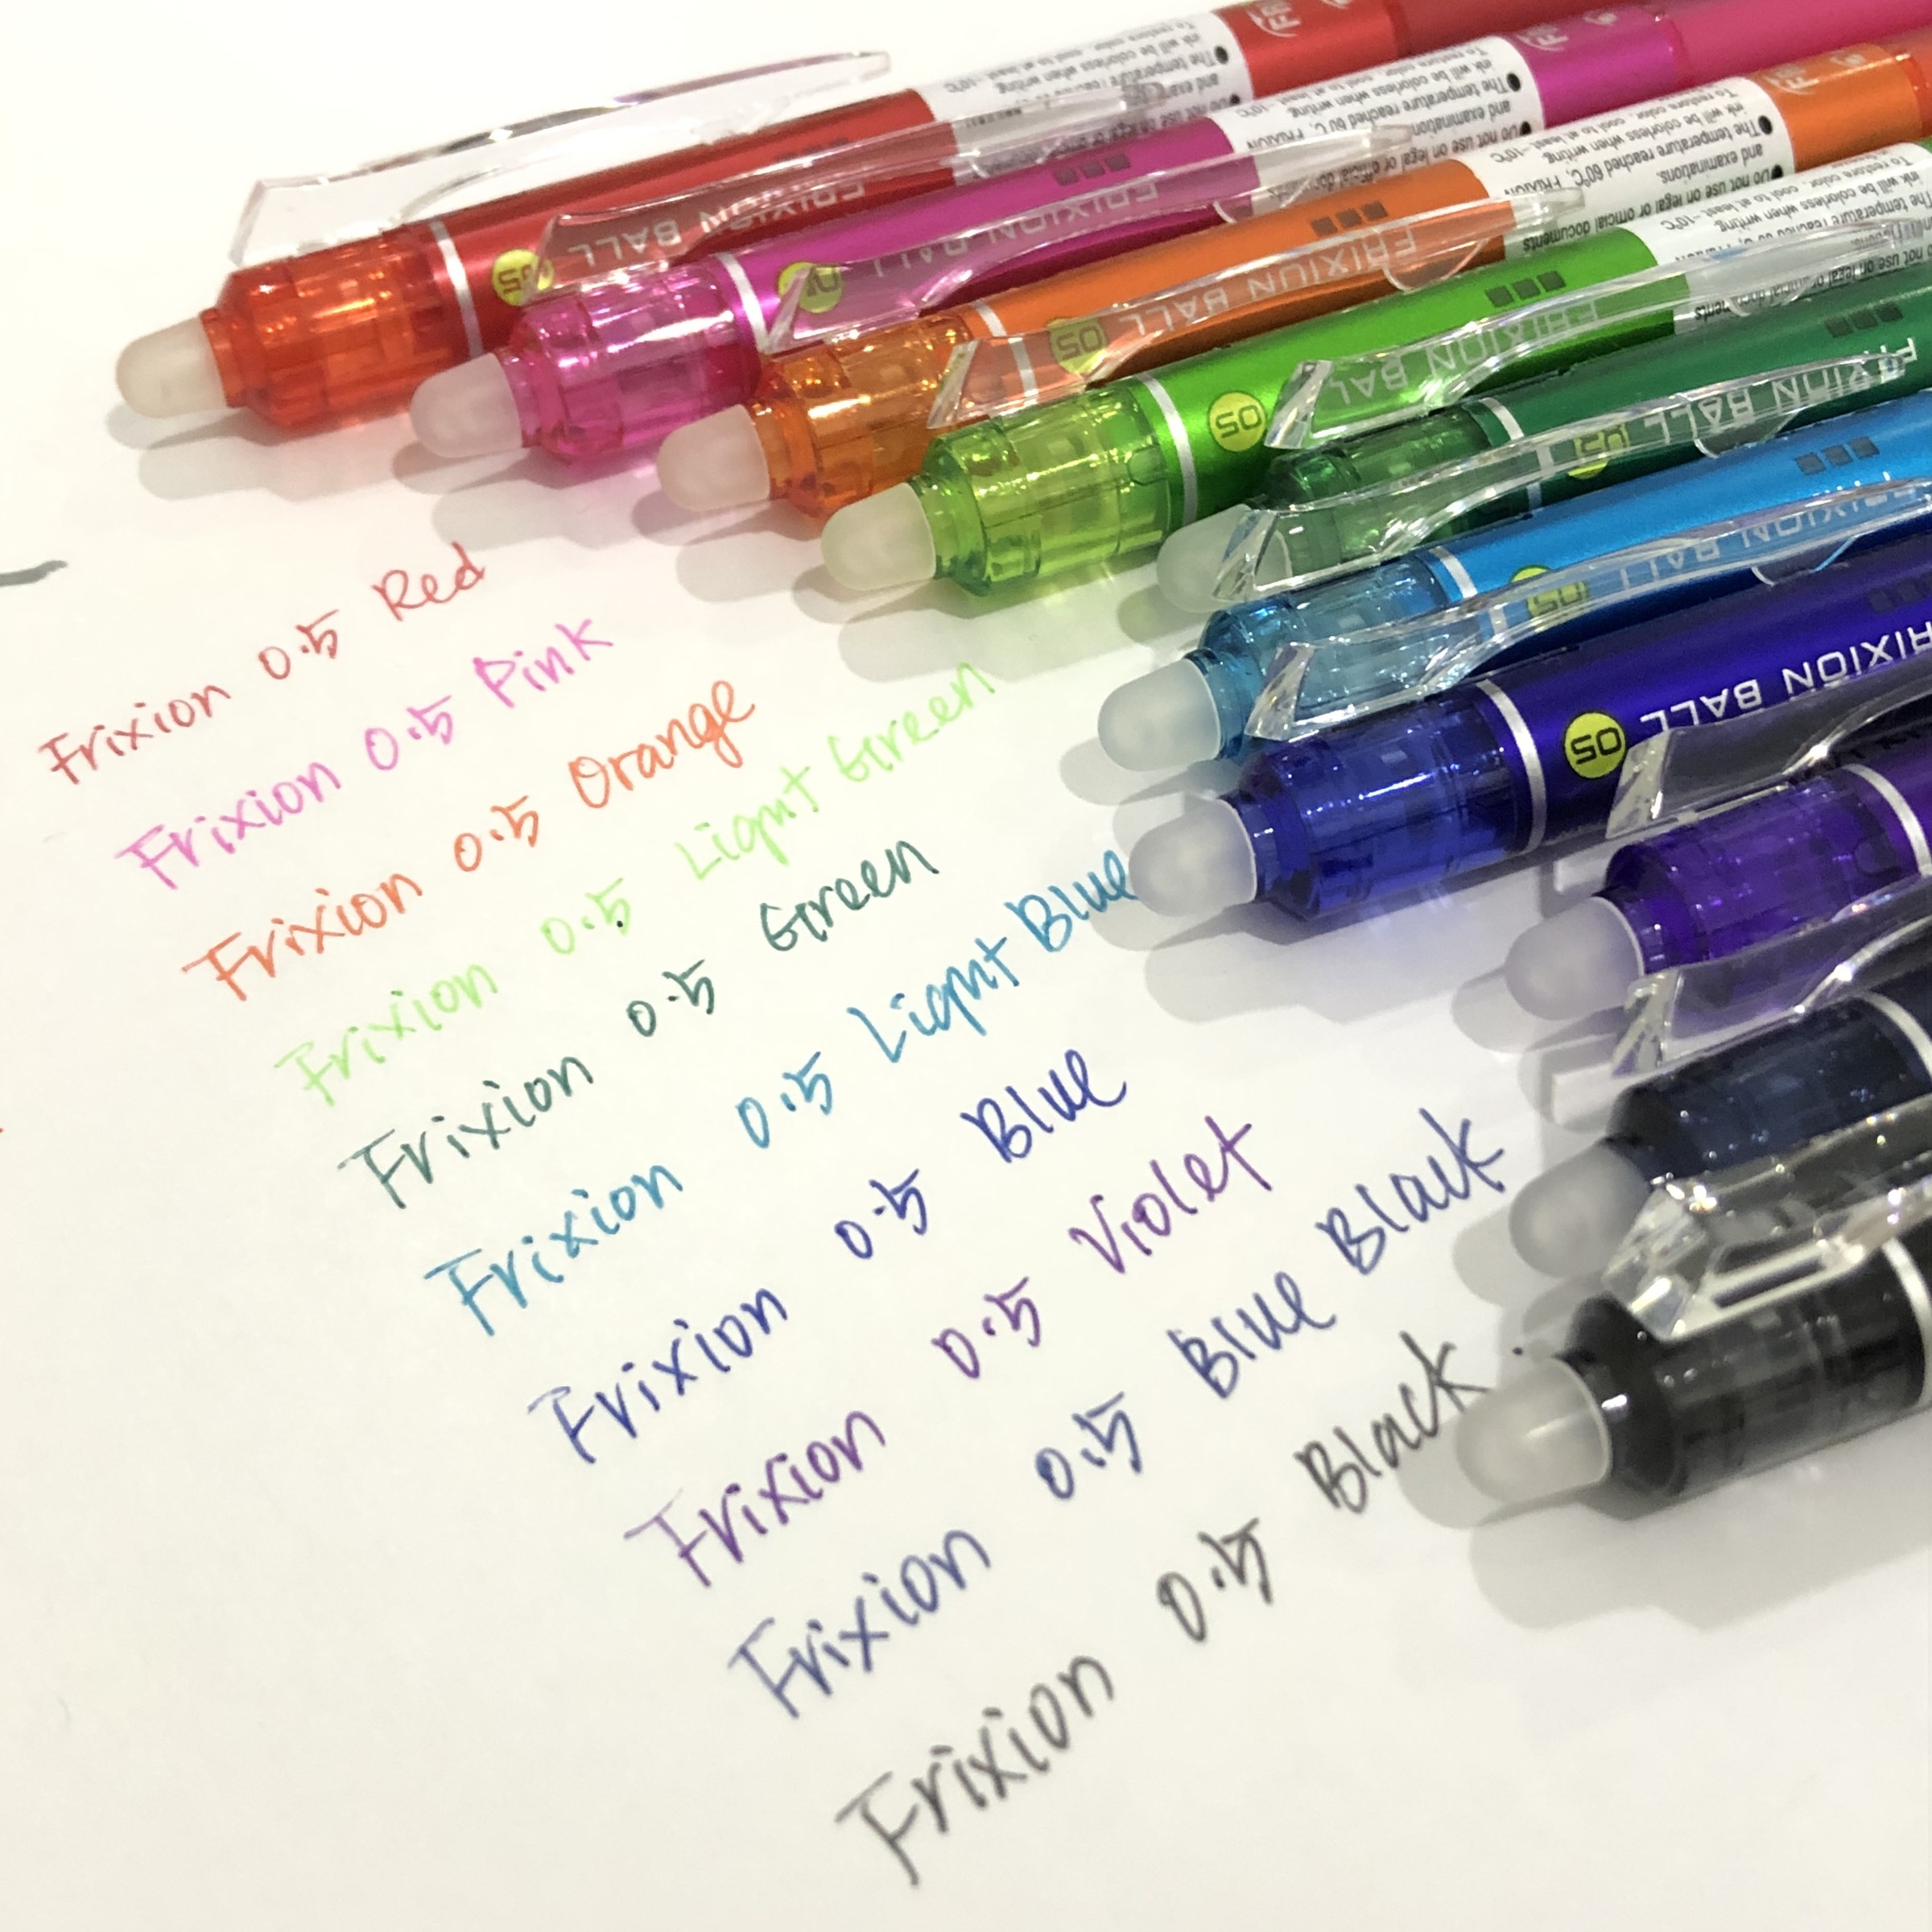 Frixion 0.5 Red
Frixion 0.5 Pink
Frixion 0.5 Orange
Frixion 0.5 Light Green
Frixion 0.5 Green
Frixion 0.5 Light Blue
Frixion 0.5 Blue
Frixion 0.5 Violet
Frixion 0.5 Blue Black
Frixion 0.5 Black
05 FRIXION BALL
05 FRIXION BALL
05 FRIXION BALL
05 FRIXION BALL
05 FRIXION BALL
05 FRIXION BALL
05 FRIXION BALL
Do not use on legal or official documents
and examinations.
The temperature reached 60°C, FRIXION
ink will be colorless when writing.
To restore color, cool to at least -10°C